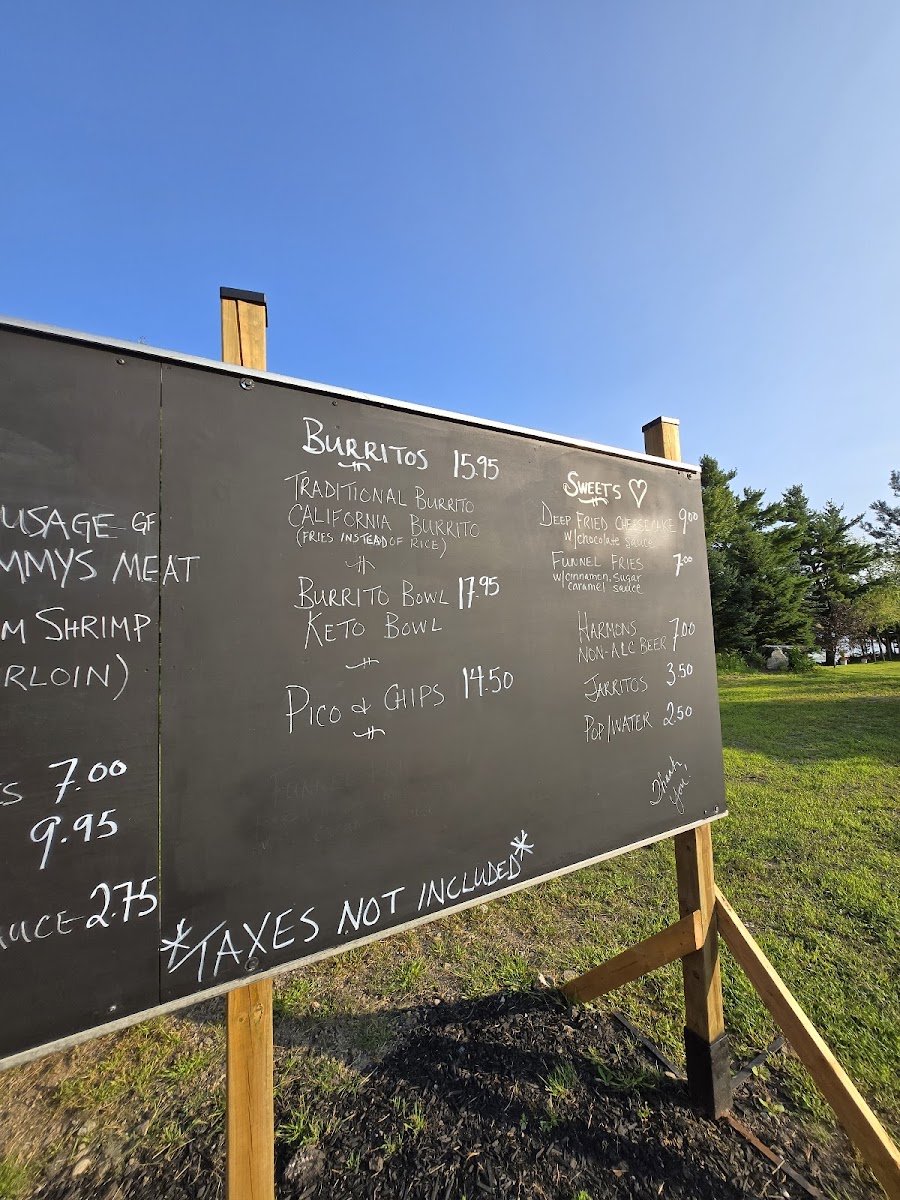 USAGE GF
MMYS MEAT
M SHRIMP
RLOIN)
S 7.00
9.95
UCE 2.75
BURRITOS 15.95
TRADITIONAL BURRITO
CALIFORNIA BURRITO
(FRIES INSTEAD OF RICE)
BURRITO BOWL 17.95
KETO BOWL
PICO & CHIPS 14.50
SWEETS ♡
DEEP FRIED CHEESECAKE 9.00
w/chocolate sauce
FUNNEL FRIES 7.00
w/cinnamon, sugar
caramel sauce
HARMONS 7.00
NON-ALC BEER
JARRITOS 3.50
POP/WATER 2.50
Thank
you!
*TAXES NOT INCLUDED*